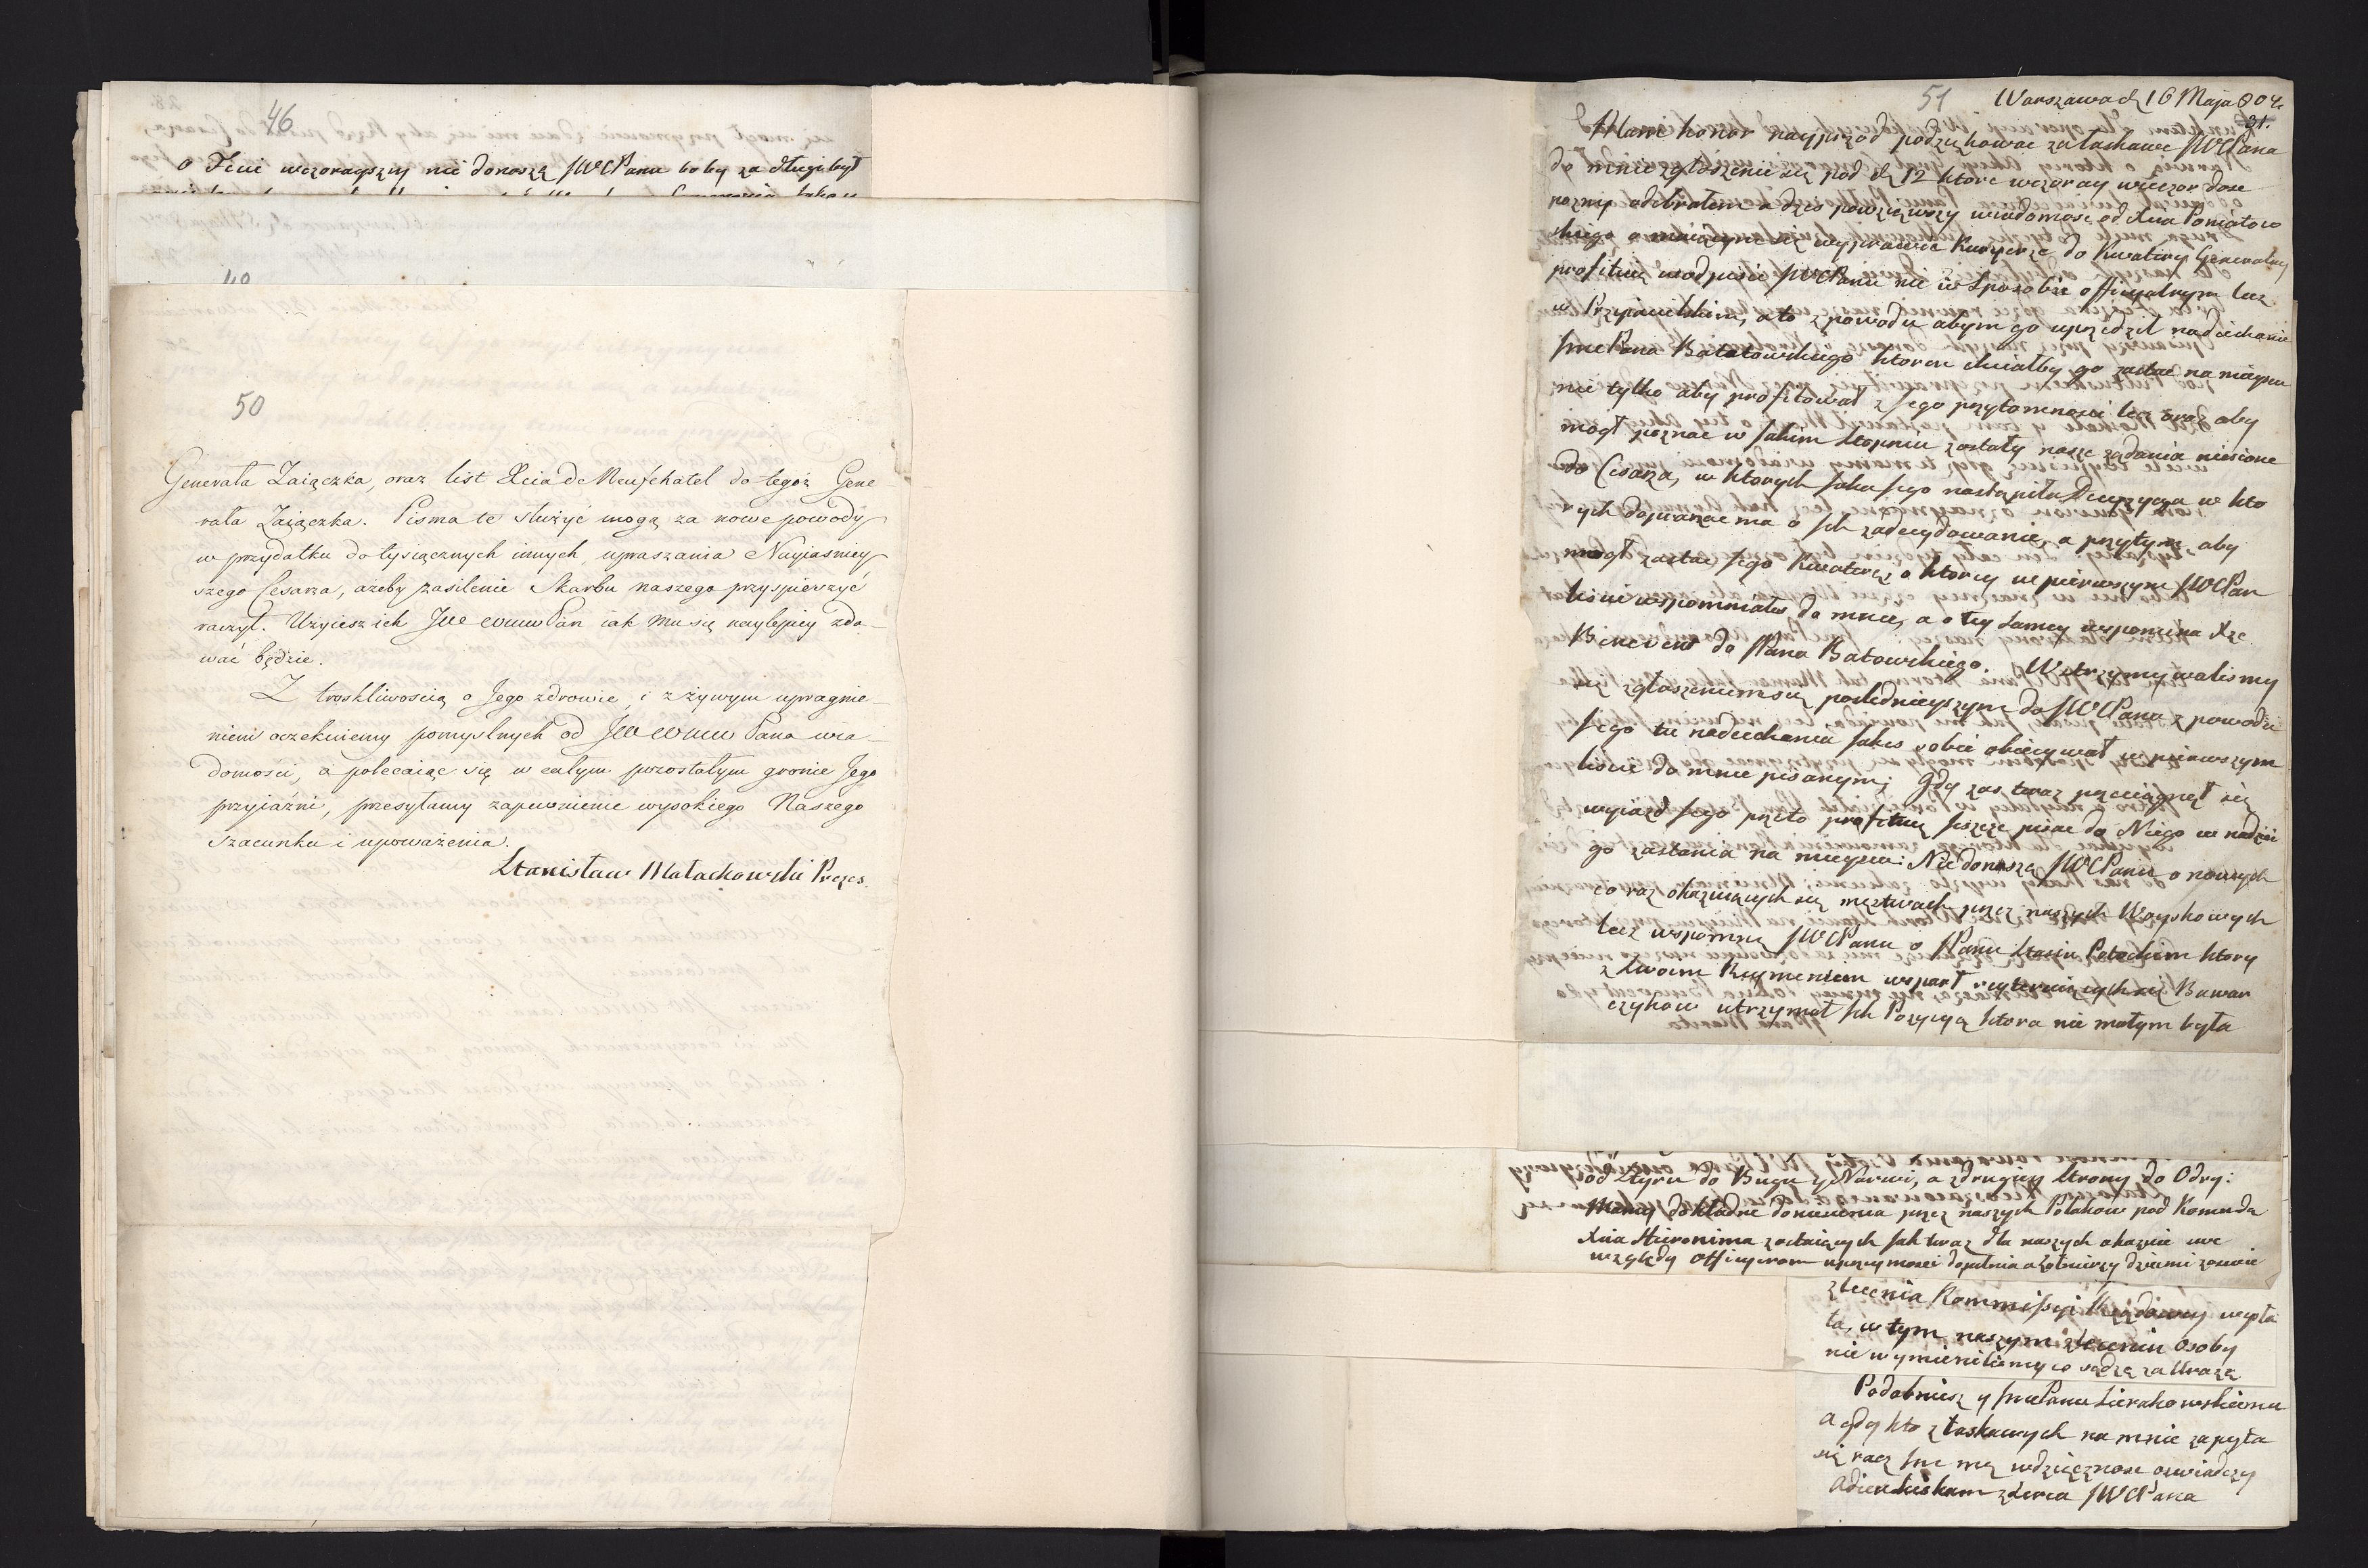 46
o Zoui wczorayszey nie donoszę JWWPanu bo by za długi był
50
Generała Zaiączka, oraz list Xcia de Neufchatel do tegoż Gene
rała Zaiączka. Pisma te służyć mogą za nowe powody
w przydatku do tysiącznych innych, upraszania Nayiaśniey
szego Cesarza, ażeby zasilenie Skarbu naszego przyspieszyć
raczył. Użyiesz ich Pan iak mu się naylepiey zda-
wać będzie.
Z troskliwością o Jego zdrowie, i z żywym upragnie-
niem oczekuiemy pomyślnych od Pana wia-
domości, a polecaiąc się w całym pozostałym gronie Jego
przyiaźni, przesyłamy zapewnienie wysokiego Naszego
szacunku i upoważenia.
Stanisław Małachowski Prezes.
51
Warszawa d. 16 Maja 807.
31.
Mam honor nayprzod podziękować za łaskawe JWWPana
do mnie zgłoszenie się pod d. 12 ktore wczoray wieczor dose
pozno odebrałem a dzis powziąwszy wiadomosc od Xcia Poniatow
skiego o maiącym się wyprawić Kuryerze do Kwatery Generalney
profituię w odpisie JWWPanu nie w sposobie officyalnym lecz
w Przyiacielskim, a to z powodu abym go uprzedził nadiechanie
JmcPana Batowskiego ktoren chciałby go zastac na mieyscu
nie tylko aby profitował z Jego przytomnosci lecz oraz aby
mogł poznac w Jakim stopniu zostały nasze żądania niesione
do Cesarza, w ktorych Jaka Jego nastąpiła Decyzyya w kto
rych dopraszac ma o Ich zadecydowanie, a przytym aby
mogł zastac Jego Kwaterę o ktorey w pierwszym JWWPan
liscie wspomniałes do mnie, a o tey samey wspomina Xże
Benevent do JPana Batowskiego. Wstrzymywalismy
się z zgłoszeniem się poslednieyszym do JWWPana z powodu
Jego tu nadiechania Jakes sobie obiecywał w pierwszym
liscie do mnie pisanym; Gdy zas teraz przeciągnął się
wyiazd Jego przeto profituię Jeszcze pisac do Niego w nadziei
go zastania na mieyscu: Nie donoszę JWWPanu o nowych
co raz okazuiących się męztwach przez naszych Woyskowych
lecz wspomnę JWWPanu o JPanu Stasiu Potockim ktory
z swoim Regimentem wsparł reyteruiących się Bawar
czykow utrzymał Ich Pozycyą ktora nie małym była
od Styru do Bugu y Narwi, a z drugiey strony do Odry:
Mamy dokładne doniesienia przez naszych Polakow pod Komendą
Xcia Hieronima zostaiących Jak teraz dla naszych okazuie we
względy Officyerom uprzeymosci dopełnia a żołnierzy dziećmi zowie
zlecenia Kommissyi Rządowey wypła
ta, w tym naszym zleceniu osoby
nie wymienilismy co sądzę za Urazę
Podobniesz y JmcPanu Sierakowskiemu
a gdy kto z łaskawych na mnie zapyta
się racz Jmc mą wdzięcznosc oswiadczy
adieu sciskam z serca JWWPana